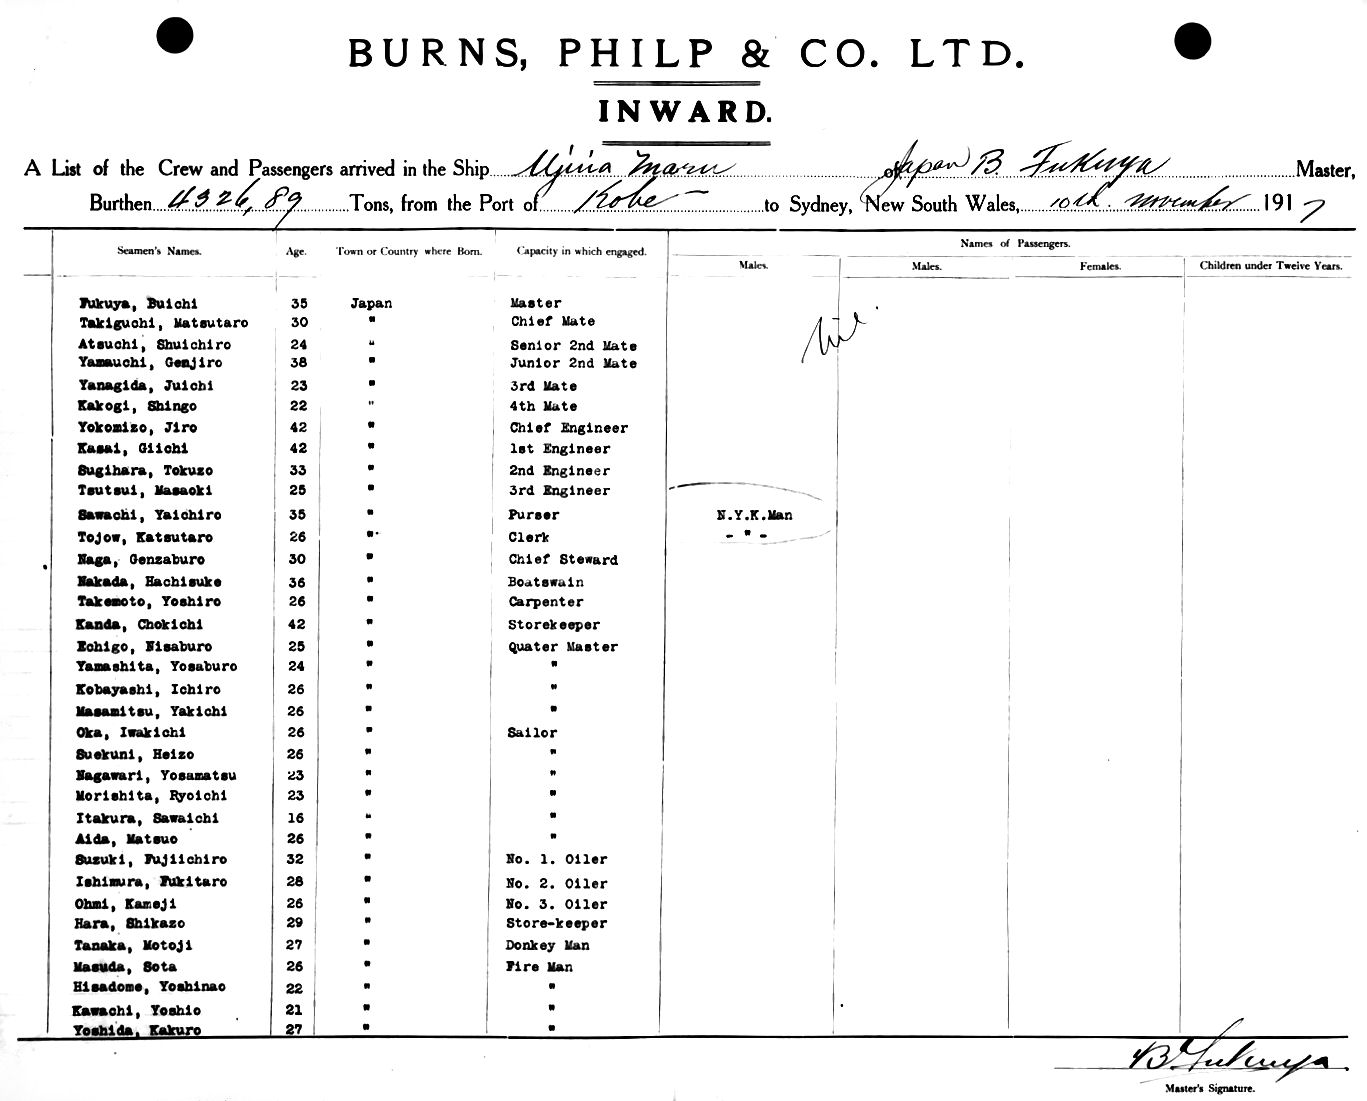 BURNS, PHILP & CO. LTD.
INWARD.
A List of the Crew and Passengers arrived in the Ship Ujina Maru of Japan B. Fukuya Master,
Burthen 4326,89 Tons, from the Port of Kobe to Sydney, New South Wales, 10th. November 1917
Names of Passengers.
Seamen's Names. Age. Town or Country where Born. Capacity in which engaged. Males. Males. Females. Children under Twelve Years.
Fukuya, Buichi 35 Japan Master
Takiguchi, Matsutaro 30 " Chief Mate
nil.
Atsuchi, Shuichiro 24 " Senior 2nd Mate
Yamauchi, Genjiro 38 " Junior 2nd Mate
Yanagida, Juichi 23 " 3rd Mate
Kakogi, Shingo 22 " 4th Mate
Yokomizo, Jiro 42 " Chief Engineer
Kasai, Giichi 42 " 1st Engineer
Sugihara, Tokuzo 33 " 2nd Engineer
Tsutsui, Masaoki 25 " 3rd Engineer
Sawachi, Yaichiro 35 " Purser N.Y.K.Man
Tojow, Katsutaro 26 " Clerk - " -
Naga, Genzaburo 30 " Chief Steward
Nakada, Hachisuke 36 " Boatswain
Takemoto, Yoshiro 26 " Carpenter
Kanda, Chokichi 42 " Storekeeper
Echigo, Nisaburo 25 " Quater Master
Yamashita, Yosaburo 24 " "
Kobayashi, Ichiro 26 " "
Masamitsu, Yakichi 26 " "
Oka, Iwakichi 26 " Sailor
Suekuni, Heizo 26 " "
Nagawari, Yosamatsu 23 " "
Morishita, Ryoichi 23 " "
Itakura, Sawaichi 16 " "
Aida, Matsuo 26 " "
Suzuki, Fujiichiro 32 " No. 1. Oiler
Ishimura, Fukitaro 28 " No. 2. Oiler
Ohmi, Kameji 26 " No. 3. Oiler
Hara, Shikazo 29 " Store-keeper
Tanaka, Motoji 27 " Donkey Man
Masuda, Sota 26 " Fire Man
Hisadome, Yoshinao 22 " "
Kawachi, Yoshio 21 " "
Yoshida, Kakuro 27 " "
B. Fukuya
Master's Signature.